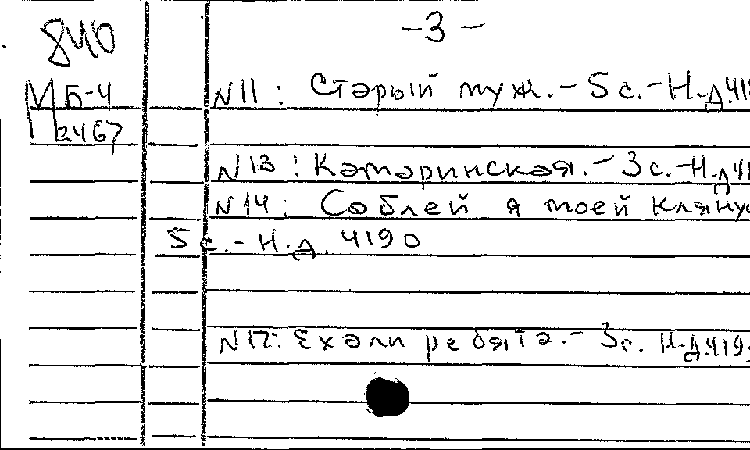 840
-3-
М Б-4
2467
N11: Старый муж. - 5 с. - Н.д.419
N13: Камаринская. - 3 с. - Н.д.41
N14: Саблей я моей кляну
5 с. - Н.д. 4190
N17: Ехали ребята. - 3 с. Н.д.419